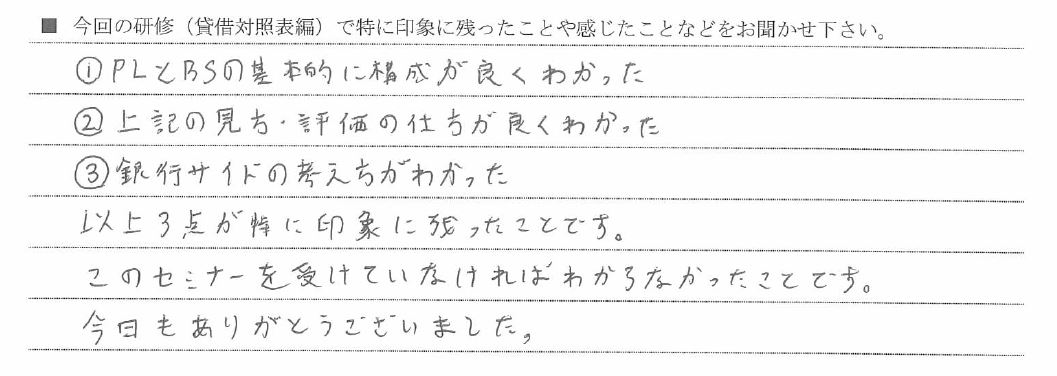 ■ 今回の研修（貸借対照表編）で特に印象に残ったことや感じたことなどをお聞かせ下さい。
①PLとBSの基本的に構成が良くわかった
②上記の見方・評価の仕方が良くわかった
③銀行サイドの考え方がわかった
以上3点が特に印象に残ったことです。
このセミナーを受けていなければわからなかったことです。
今日もありがとうございました。